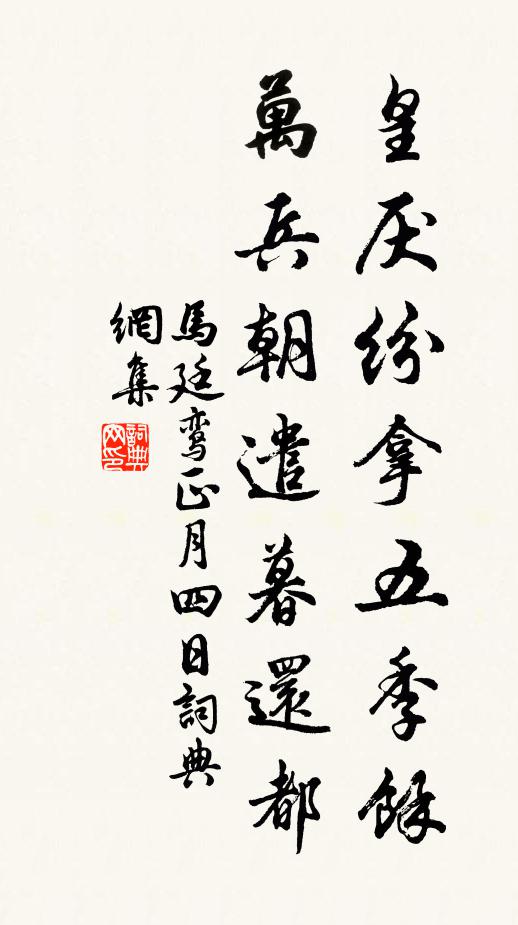 皇厌紛拿五季餘
萬兵朝遣暮還都
馬廷鸾正月四日詞典
網集
詞典網印